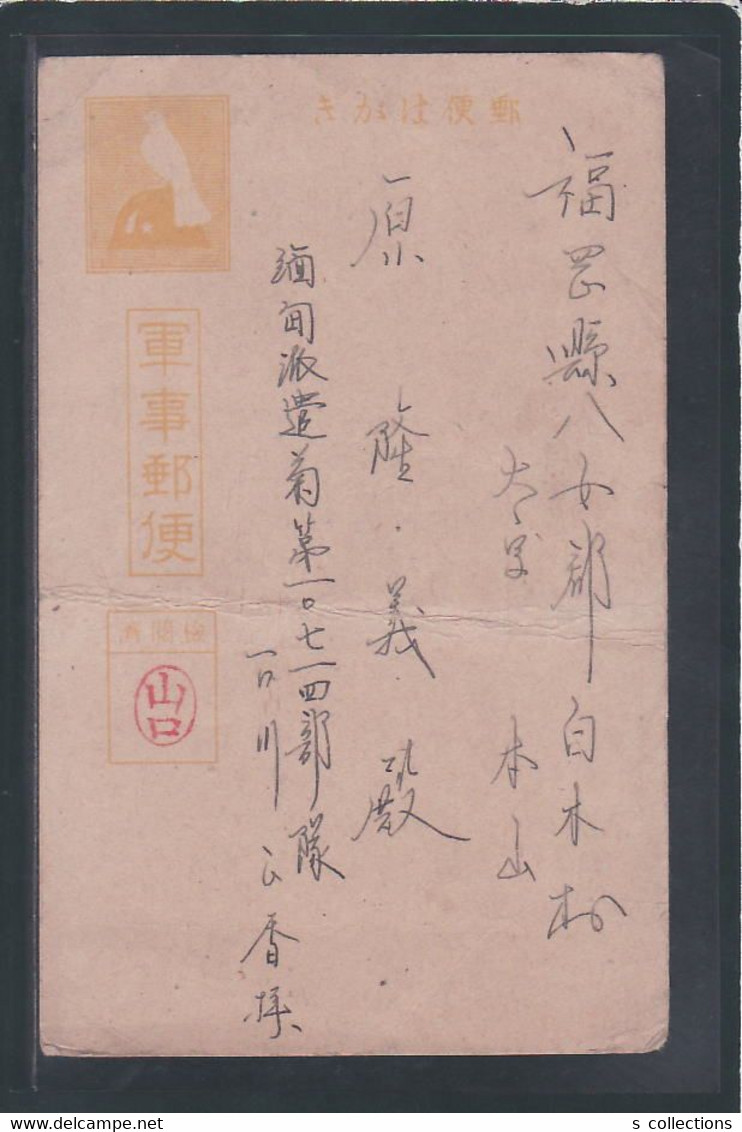 郵便はがき
福岡縣八女郡白木村
大字 本山
原 隆 義 殿
緬甸派遣菊第一〇七一四部隊
軍事郵便
検閲済
山口
s collections
© www.delcampe.net